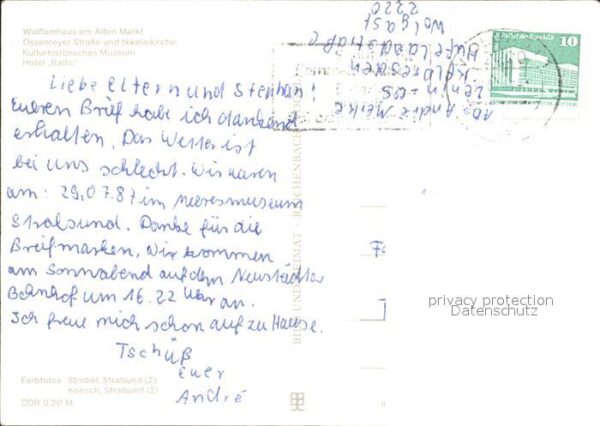 Wulflamhaus am Alten Markt
Ossenreyer Straße und Nikolaikirche
Kulturhistorisches Museum
Hotel „Baltic“
Liebe Eltern und Stephan!
Eueren Brief habe ich dankend
erhalten, Das Wetter ist
bei uns schlecht. Wir waren
am: 29.07.87 im Meeresmuseum
Stralsund. Danke für die
Breifmarken, Wir kommen
am Sonnabend auf dem Neustädter
Bahnhof um 16.22 Uhr an.
Ich freue mich schon auf zu Hause.
Tschüß
Euer
André
Farbfotos: Strobel, Stralsund (2)
Korisch, Stralsund (2)
DDR 0,20 M
BILD UND HEIMAT · REICHENBACH
Palast der Republik
10
Abs. André
Lenin-OS
Hufelandstraße
Wolgast
2220
privacy protection
Datenschutz